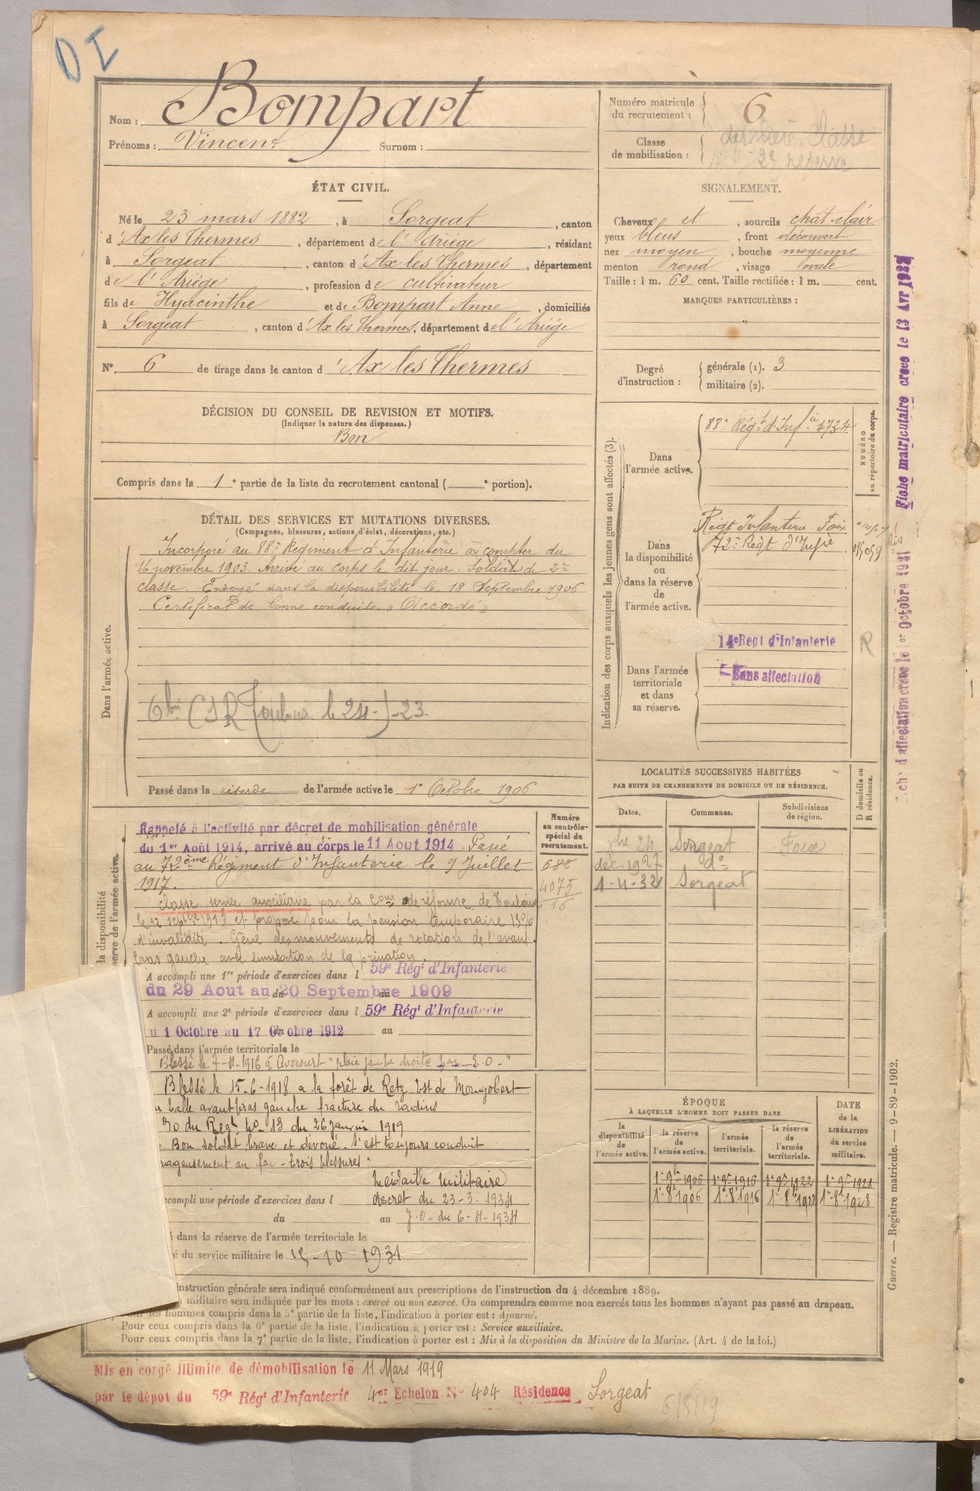 DI
Nom : Bompart
Prénoms : Vincent Surnom :
ÉTAT CIVIL.
Né le 23 mars 1882, à Sorgeat, canton
d'Ax les Thermes, département de l'Ariège, résidant
à Sorgeat, canton d'Ax les Thermes, département
de l'Ariège, profession de cultivateur
fils de Hyacinthe et de Bompart Anne, domiciliés
à Sorgeat, canton d'Ax les Thermes, département de l'Ariège
N° 6 de tirage dans le canton d'Ax les Thermes
DÉCISION DU CONSEIL DE REVISION ET MOTIFS.
(Indiquer la nature des dispenses.)
Bon
Compris dans la 1e partie de la liste du recrutement cantonal ( e portion).
DÉTAIL DES SERVICES ET MUTATIONS DIVERSES.
(Campagnes, blessures, actions d'éclat, décorations, etc.)
Dans l'armée active.
Incorporé au 88e Régiment d'Infanterie à compter du
16 novembre 1903. Arrivé au corps le dit jour. Soldat de 2me
classe. Envoyé dans la disponibilité le 18 Septembre 1906
Certificat de bonne conduite « Accordé »
le 24-7-23.
Passé dans la réserve de l'armée active le 1er Octobre 1906
la disponibilité
réserve de l'armée active.
Rappelé à l'activité par décret de mobilisation générale
du 1er Août 1914, arrivé au corps le 11 Aout 1914. Passé
au 72ème Régiment d'Infanterie le 9 Juillet
1917.
Classé service auxiliaire par la Cion de réforme de Toulouse
le 12 1919 et proposé pour la pension temporaire 15%
d'invalidité. Gêne des mouvements de rotation de l'avant
bras gauche avec limitation de la pronation.
A accompli une 1re période d'exercices dans l 59e Régt d'Infanterie
du 29 Aout au 20 Septembre 1909
A accompli une 2e période d'exercices dans l 59e Régt d'Infanterie
u 1 Octobre au 17 Octobre 1912 au
Passé dans l'armée territoriale le
Blessé le 7-11-1916 à Avocourt "plaie jambe droite par E.O."
Blessé le 15-6-1918 a la forêt de Retz Est de Mongobert
balle avant bras gauche fracture du radius
du Regt no 13 du 26 janvier 1919
Bon soldat brave et dévoué. S'est toujours conduit
rageusement au feu. trois blessures"
Médaille Militaire
ccompli une période d'exercices dans l décret du 23-3-1934
du au J.O. du 6-4-1934
é dans la réserve de l'armée territoriale le
é du service militaire le 15-10-1931
Numéro au contrôle spécial du recrutement.
688
4075
15
Numéro matricule du recrutement : 6
Classe de mobilisation : dernière Classe
2e réserve
SIGNALEMENT.
Cheveux et , sourcils chat-clair
yeux bleus , front découvert
nez moyen , bouche moyenne
menton rond , visage ovale
Taille : 1 m. 60 cent. Taille rectifiée : 1 m. cent.
MARQUES PARTICULIÈRES :
"
Degré d'instruction : générale (1). 3
militaire (2).
Indication des corps auxquels les jeunes gens sont affectés (3).
NUMÉRO au répertoire du corps.
Dans l'armée active. 88e Régt d'Infie 4724
Dans la disponibilité ou dans la réserve de l'armée active.
Régt Infanterie Foix
72e Régt d'Infie 015059
Dans l'armée territoriale et dans sa réserve.
14e Regt d'Infanterie
Sans affectation
R
LOCALITÉS SUCCESSIVES HABITÉES
PAR SUITE DE CHANGEMENTS DE DOMICILE OU DE RÉSIDENCE.
D domicile ou R résidence.
Dates. Communes. Subdivisions de région.
24 Sorgeat Foix
déc. 1927 do
1-4-32 Sorgeat
ÉPOQUE
À LAQUELLE L'HOMME DOIT PASSER DANS
DATE de la LIBÉRATION du service militaire.
la disponibilité de l'armée active. la réserve de l'armée active. l'armée territoriale. la réserve de l'armée territoriale.
1-9bre-1906 1-9bre-1916 1-9bre-1922 1-9bre-1928
1-8bre-1906 1-8bre-1916 1-8bre-1922 1-8bre-1928
Fiche matriculaire creee le 13 Avr
che d'affectation creee le 1er Octobre 1921
Guerre. — Registre matricule. — 9-89-1902.
instruction générale sera indiqué conformément aux prescriptions de l'instruction du 4 décembre 1889.
militaire sera indiquée par les mots : exercé ou non exercé. On comprendra comme non exercés tous les hommes n'ayant pas passé au drapeau.
les hommes compris dans la 5e partie de la liste, l'indication à porter est : Ajourné.
Pour ceux compris dans la 6e partie de la liste, l'indication à porter est : Service auxiliaire.
Pour ceux compris dans la 7e partie de la liste, l'indication à porter est : Mis à la disposition du Ministre de la Marine. (Art. 4 de la loi.)
Mis en congé illimité de démobilisation le 11 Mars 1919
par le dépot du 59e Régt d'Infanterie 4er Echelon No 404 Résidence Sorgeat